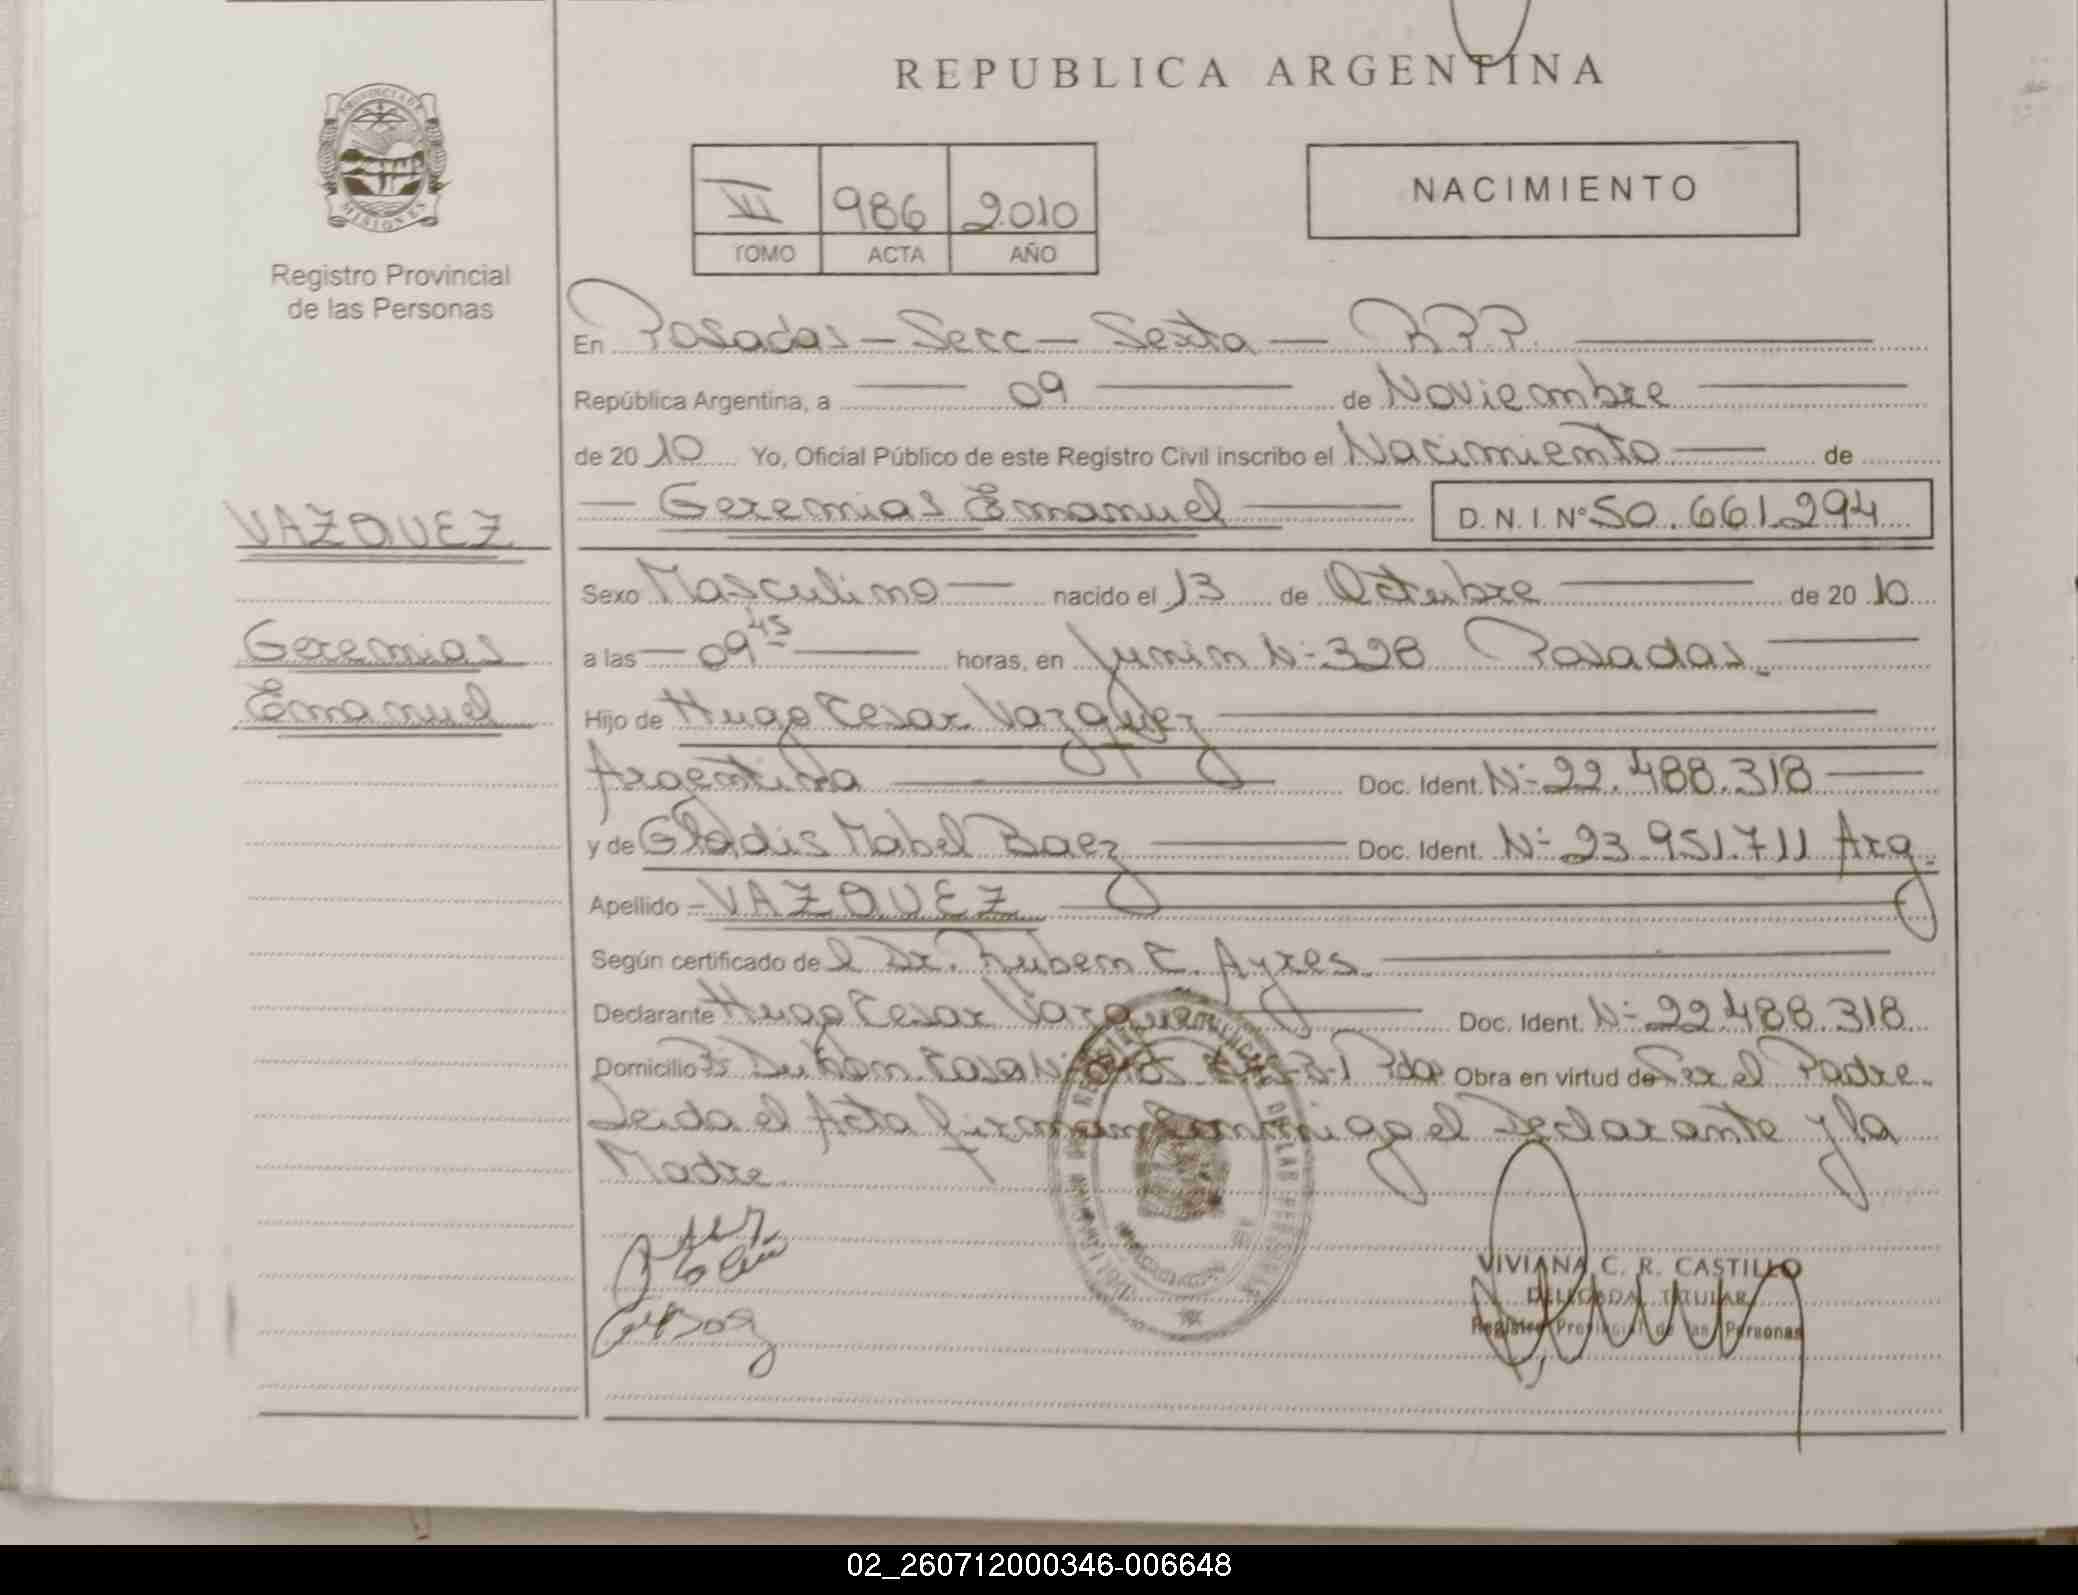 REPUBLICA ARGENTINA
PROVINCIA DE
MISIONES
Registro Provincial
de las Personas
VI 986 2010
TOMO ACTA AÑO
NACIMIENTO
En Posadas - Secc - Sexta - R.P.P.
República Argentina, a 09 de Noviembre
de 2010 Yo, Oficial Público de este Registro Civil inscribo el Nacimiento de
Geremias Emanuel D.N.I. Nº 50.661.294
VAZQUEZ
Geremias
Emanuel
Sexo Masculino nacido el 13 de Octubre de 2010
a las 09 45 horas, en Junin Nº 328 Posadas.
Hijo de Hugo Cesar Vazquez
Argentina Doc. Ident. Nº 22.488.318
y de Gladis Mabel Baez Doc. Ident. Nº 23.951.711 Arg.
Apellido VAZQUEZ
Según certificado del Dr. Ruben C. Ayres.
Declarante Hugo Cesar Vazquez Doc. Ident. Nº 22.488.318
Domicilio Pdas Obra en virtud de Ser el Padre.
Leida el Acta firman conmigo el Declarante y la
Madre.
VIVIANA C. R. CASTILLO
DELEGADA TITULAR
Registro Provincial de las Personas
02_260712000346-006648